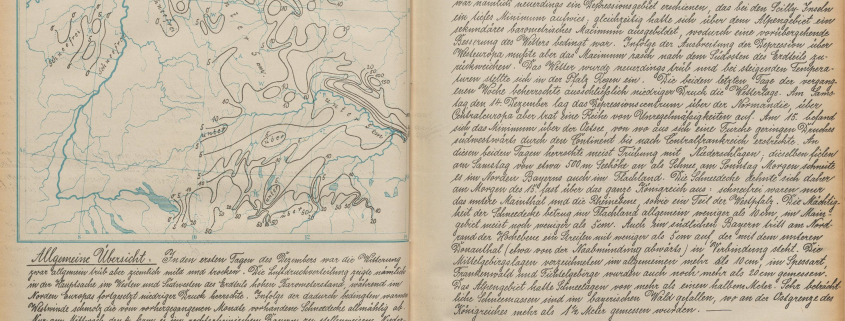 war nämlich neuerdings ein Depressionsgebiet erschienen, das bei den Scilly Inseln
ein tiefes Minimum aufwies, gleichzeitig hatte sich über dem Alpengebiet ein
sekundäres barometrisches Maximum ausgebildet, wodurch eine vorübergehende
Besserung des Wetters bedingt war. Infolge der Ausbreitung der Depression über
Westeuropa mußte aber das Maximum rasch nach dem Südosten des Erdteils zu-
rückweichen. Das Wetter wurde neuerdings trüb und bei steigenden Tempera-
turen stellte sich in der Pfalz Regen ein. Die beiden letzten Tage der vergang-
enen Woche beherrschte ausschließlich niedriger Druck die Wetterlage. Am Sams-
tag den 14. Dezember lag das Depressionscentrum über der Normandie, über
Centraleuropa aber trat eine Reihe von Unregelmäßigkeiten auf. Am 15. befand
sich das Minimum über der Ostsee, von wo aus sich eine Furche geringen Druckes
südwestwärts durch den Continent bis nach Centralfrankreich erstreckte. An
diesen beiden Tagen herrschte meist Trübung mit Niederschlägen, dieselben fielen
am Samstag von etwa 500 m Seehöhe an als Schnee, am Sonntag Morgen schneite
es im Norden Bayerns auch im Flachland. Die Schneedecke dehnte sich daher
am Morgen des 15. fast über das ganze Königreich aus: schneefrei waren nur
das untere Mainthal und die Rheinebene, sowie ein Teil der Westpfalz. Die Mächtig-
keit der Schneedecke betrug im Flachland allgemein weniger als 10 cm, im Main-
gebiet meist noch weniger als 5 cm. Auch im südlichen Bayern tritt am Nord-
rand der Hochebene ein Streifen mit weniger als 5 cm auf, der mit dem unteren
Donauthal (etwa von der Naabmündung abwärts) in Verbindung steht. Die
Mittelgebirgslagen verzeichneten im allgemeinen mehr als 10 cm, im Spessart,
Frankenwald und Fichtelgebirge wurden auch noch mehr als 20 cm gemessen.
Das Alpengebiet hatte Schneelagen von mehr als einem halben Meter. Sehr beträcht-
liche Schneemassen sind im bayerischen Wald gefallen, wo an der Ostgrenze des
Königreiches mehr als 1½ Meter gemessen wurden. —
Schneefrei
unter
über
unter
Allgemeine Übersicht. In den ersten Tagen des Dezembers war die Witterung
zwar allgemein trüb aber ziemlich mild und trocken. Die Luftdruckverteilung zeigte nämlich
in der Hauptsache im Westen und Südwesten des Erdteils hohen Barometerstand, während im
Norden Europas fortgesetzt niedriger Druck herrschte. Infolge der dadurch bedingten warmen
Westwinde schmolz die vom vorhergegangenen Monate vorhandene Schneedecke allmählig ab.